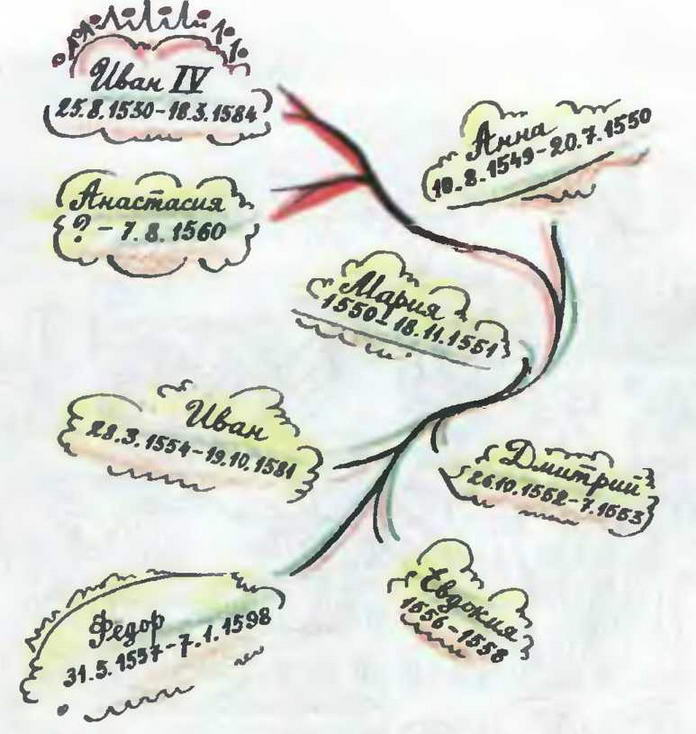 Иван IV
25.8.1530-18.3.1584
Анастасия
? - 7.8.1560
Анна
10.8.1549-20.7.1550
Мария
1550-18.11.1551
Иван
28.3.1554-19.10.1581
Дмитрий
26.10.1552-7.1553
Евдокия
1556-1558
Федор
31.5.1557-7.1.1598